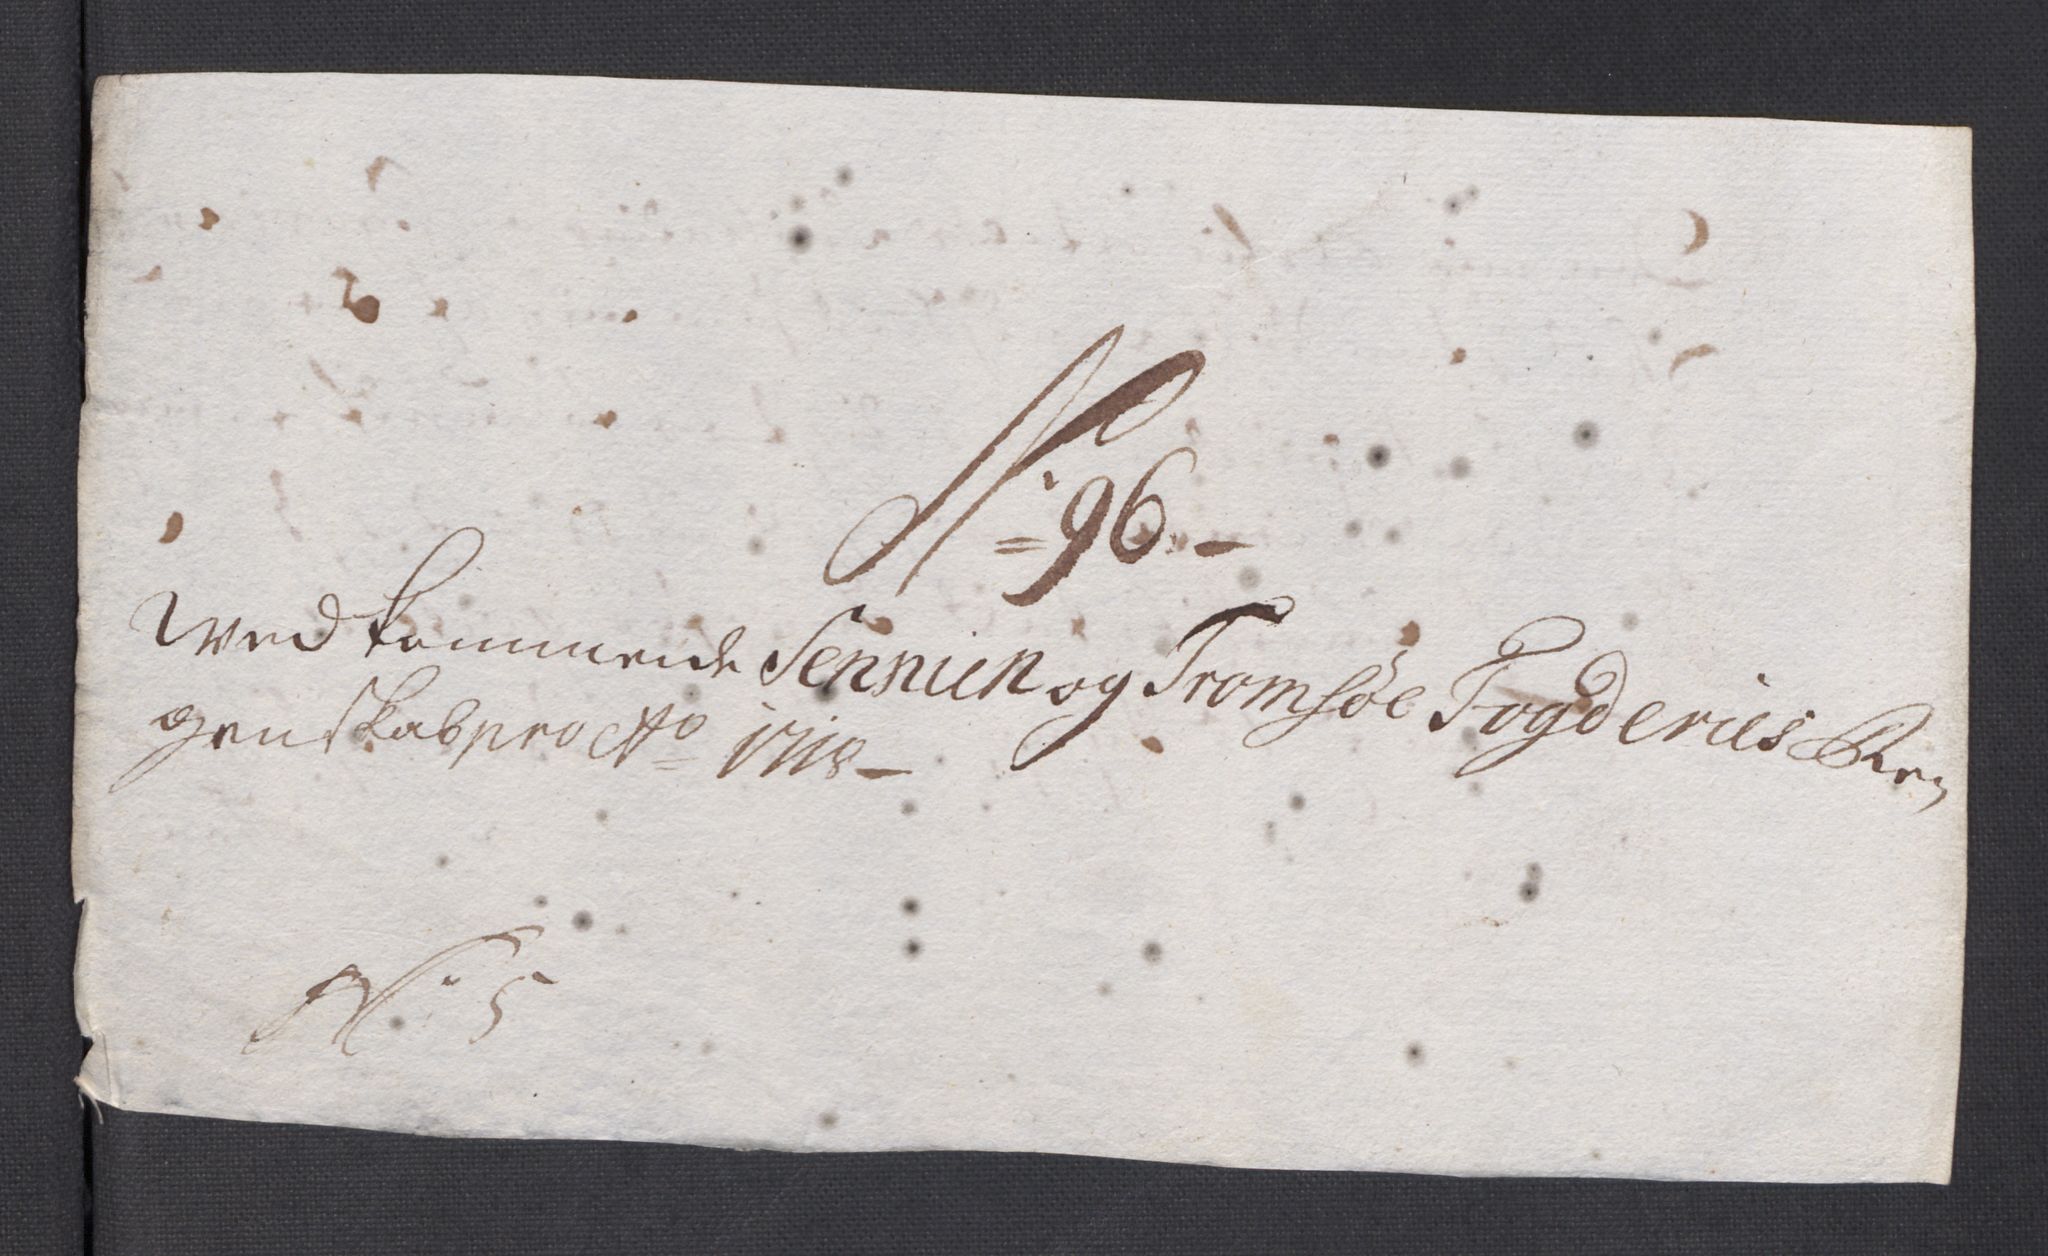 No: 96.
Wedkommende Sennien og Tromsöe Fogderies Reg
genskab pro Ao 1718
No: 5